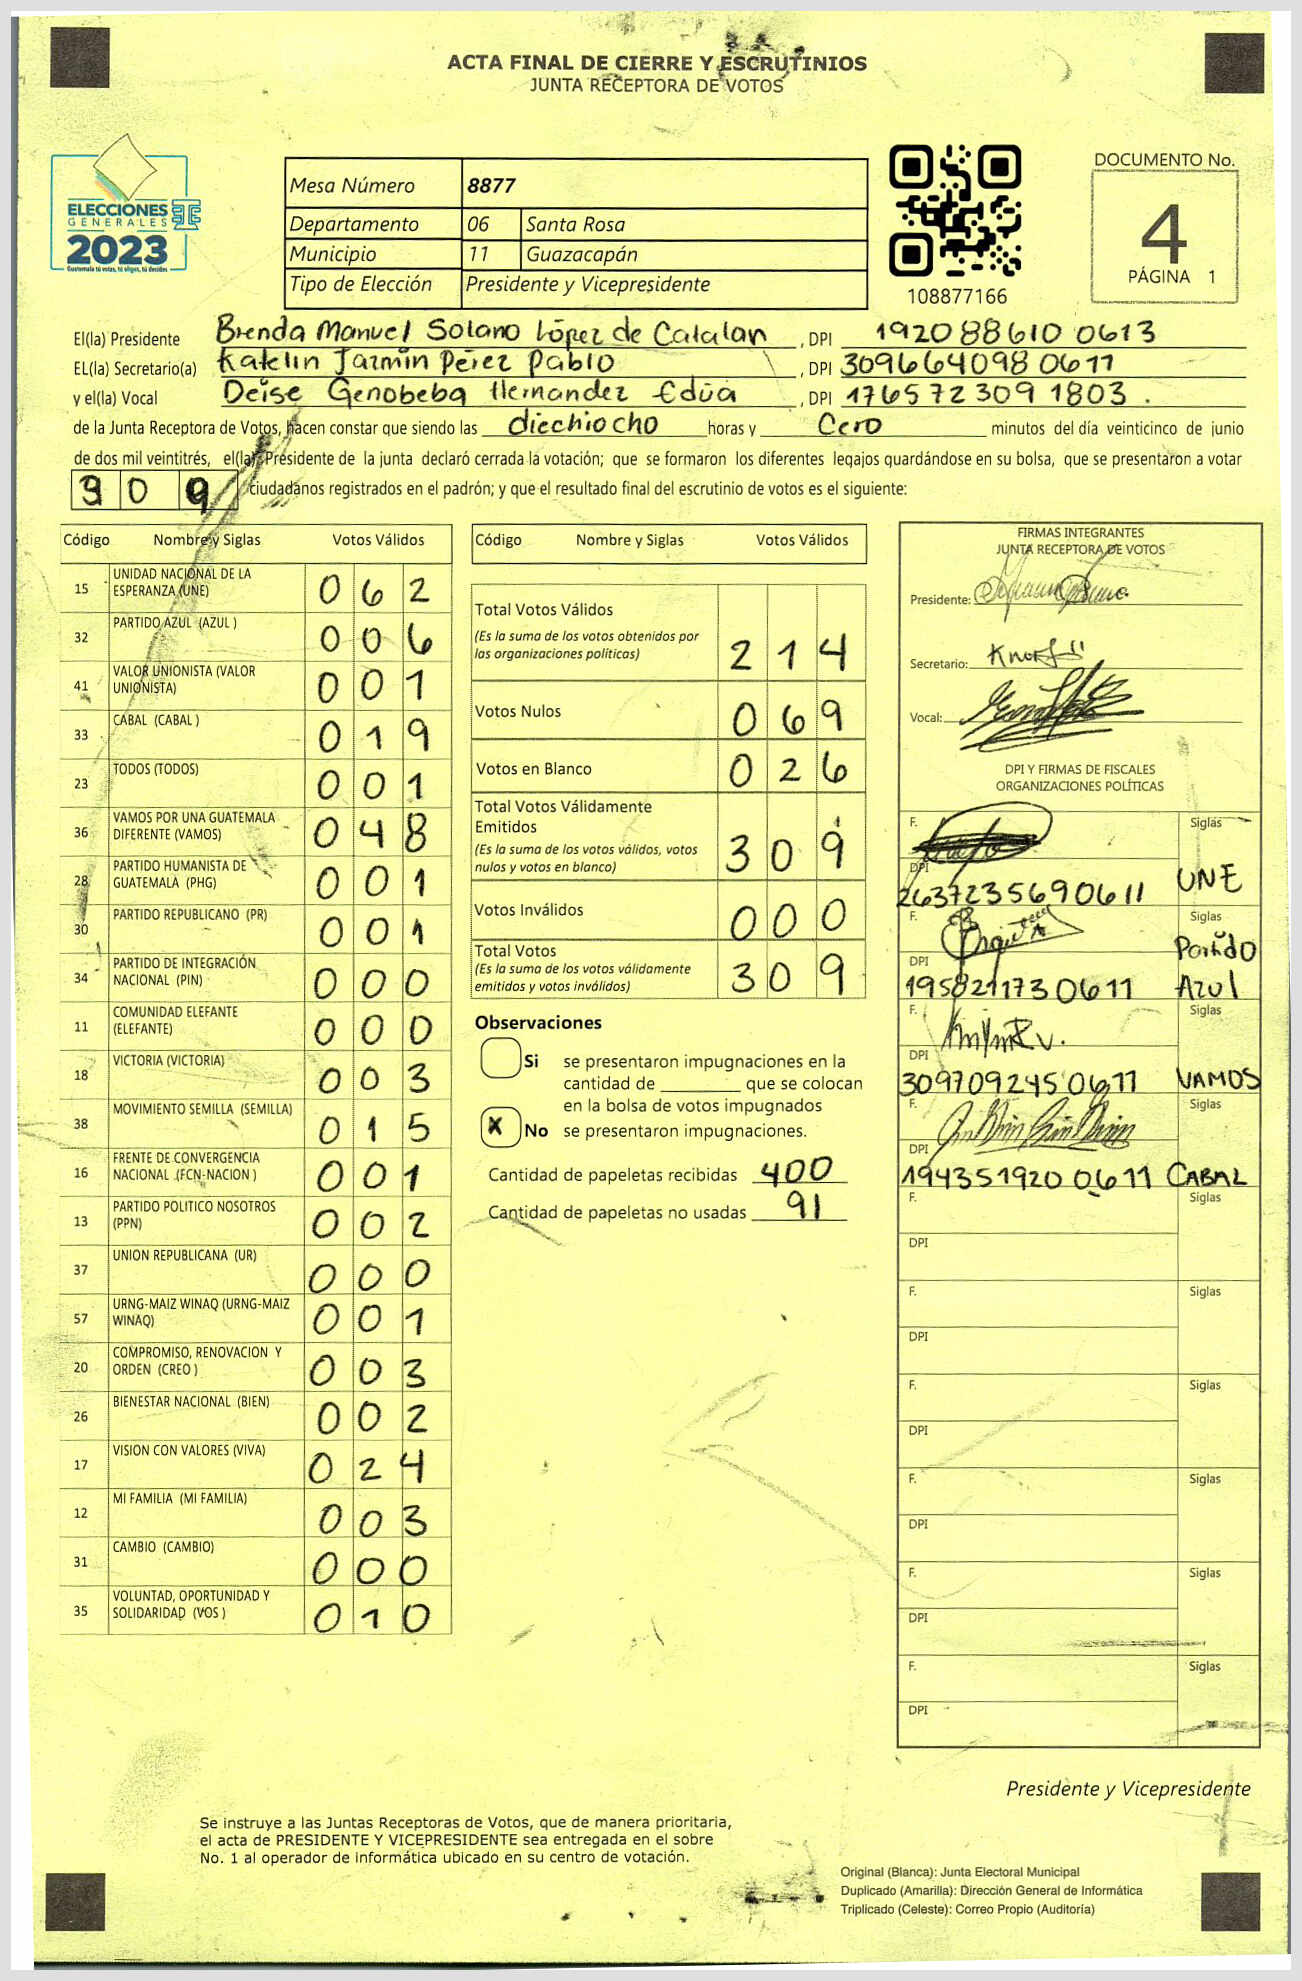 ACTA FINAL DE CIERRE Y ESCRUTINIOS
JUNTA RECEPTORA DE VOTOS
ELECCIONES
GENERALES
2023
Guatemala tú votas, tú eliges, tú decides
Mesa Número 8877
Departamento 06 Santa Rosa
Municipio 11 Guazacapán
Tipo de Elección Presidente y Vicepresidente
108877166
DOCUMENTO No.
4
PÁGINA 1
El(la) Presidente Brenda Manuel Solano López de Catalan , DPI 192088610 0613
EL(la) Secretario(a) Katelin Jazmín Pérez Pablo , DPI 309664098 0611
y el(la) Vocal Deise Genobeba Hernandez , DPI 176572309 1803 .
de la Junta Receptora de Votos, hacen constar que siendo las diechiocho horas y Cero minutos del día veinticinco de junio
de dos mil veintitrés, el(la) Presidente de la junta declaró cerrada la votación; que se formaron los diferentes legajos guardándose en su bolsa, que se presentaron a votar
309 ciudadanos registrados en el padrón; y que el resultado final del escrutinio de votos es el siguiente:
Código Nombre y Siglas Votos Válidos
15 UNIDAD NACIONAL DE LA ESPERANZA (UNE) 062
32 PARTIDO AZUL (AZUL ) 006
41 VALOR UNIONISTA (VALOR UNIONISTA) 001
33 CABAL (CABAL ) 019
23 TODOS (TODOS) 001
36 VAMOS POR UNA GUATEMALA DIFERENTE (VAMOS) 048
28 PARTIDO HUMANISTA DE GUATEMALA (PHG) 001
30 PARTIDO REPUBLICANO (PR) 001
34 PARTIDO DE INTEGRACIÓN NACIONAL (PIN) 000
11 COMUNIDAD ELEFANTE (ELEFANTE) 000
18 VICTORIA (VICTORIA) 003
38 MOVIMIENTO SEMILLA (SEMILLA) 015
16 FRENTE DE CONVERGENCIA NACIONAL (FCN-NACION ) 001
13 PARTIDO POLITICO NOSOTROS (PPN) 002
37 UNION REPUBLICANA (UR) 000
57 URNG-MAIZ WINAQ (URNG-MAIZ WINAQ) 001
20 COMPROMISO, RENOVACION Y ORDEN (CREO ) 003
26 BIENESTAR NACIONAL (BIEN) 002
17 VISION CON VALORES (VIVA) 024
12 MI FAMILIA (MI FAMILIA) 003
31 CAMBIO (CAMBIO) 000
35 VOLUNTAD, OPORTUNIDAD Y SOLIDARIDAD (VOS ) 010
Código Nombre y Siglas Votos Válidos
Total Votos Válidos
(Es la suma de los votos obtenidos por
las organizaciones políticas) 214
Votos Nulos 069
Votos en Blanco 026
Total Votos Válidamente
Emitidos
(Es la suma de los votos válidos, votos
nulos y votos en blanco) 309
Votos Inválidos 000
Total Votos
(Es la suma de los votos válidamente
emitidos y votos inválidos) 309
Observaciones
Si se presentaron impugnaciones en la
cantidad de ________ que se colocan
en la bolsa de votos impugnados
X No se presentaron impugnaciones.
Cantidad de papeletas recibidas 400
Cantidad de papeletas no usadas 91
FIRMAS INTEGRANTES
JUNTA RECEPTORA DE VOTOS
Presidente:
Secretario:
Vocal:
DPI Y FIRMAS DE FISCALES
ORGANIZACIONES POLÍTICAS
F. Siglas
DPI 2637235690611 UNE
F. Siglas
DPI 1958211730611 Partido Azul
F. Siglas
DPI 3097092450611 VAMOS
F. Siglas
DPI 1943519200611 CABAL
F. Siglas
DPI
F. Siglas
DPI
F. Siglas
DPI
F. Siglas
DPI
F. Siglas
DPI
F. Siglas
DPI
Presidente y Vicepresidente
Se instruye a las Juntas Receptoras de Votos, que de manera prioritaria,
el acta de PRESIDENTE Y VICEPRESIDENTE sea entregada en el sobre
No. 1 al operador de informática ubicado en su centro de votación.
Original (Blanca): Junta Electoral Municipal
Duplicado (Amarilla): Dirección General de Informática
Triplicado (Celeste): Correo Propio (Auditoría)